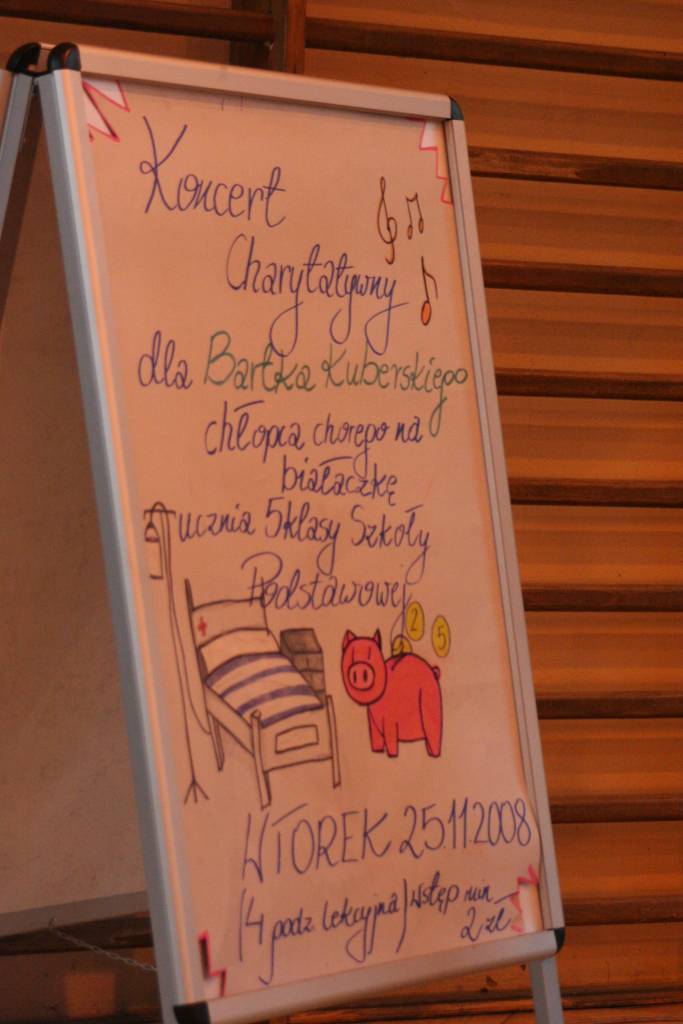 Koncert
Charytatywny
dla Bartka Kuberskiego
chłopca chorego na
białaczkę
ucznia 5klasy Szkoły
Podstawowej
2 5
WTOREK 25.11.2008
(4 godz. lekcyjna) wstęp min
2 zł